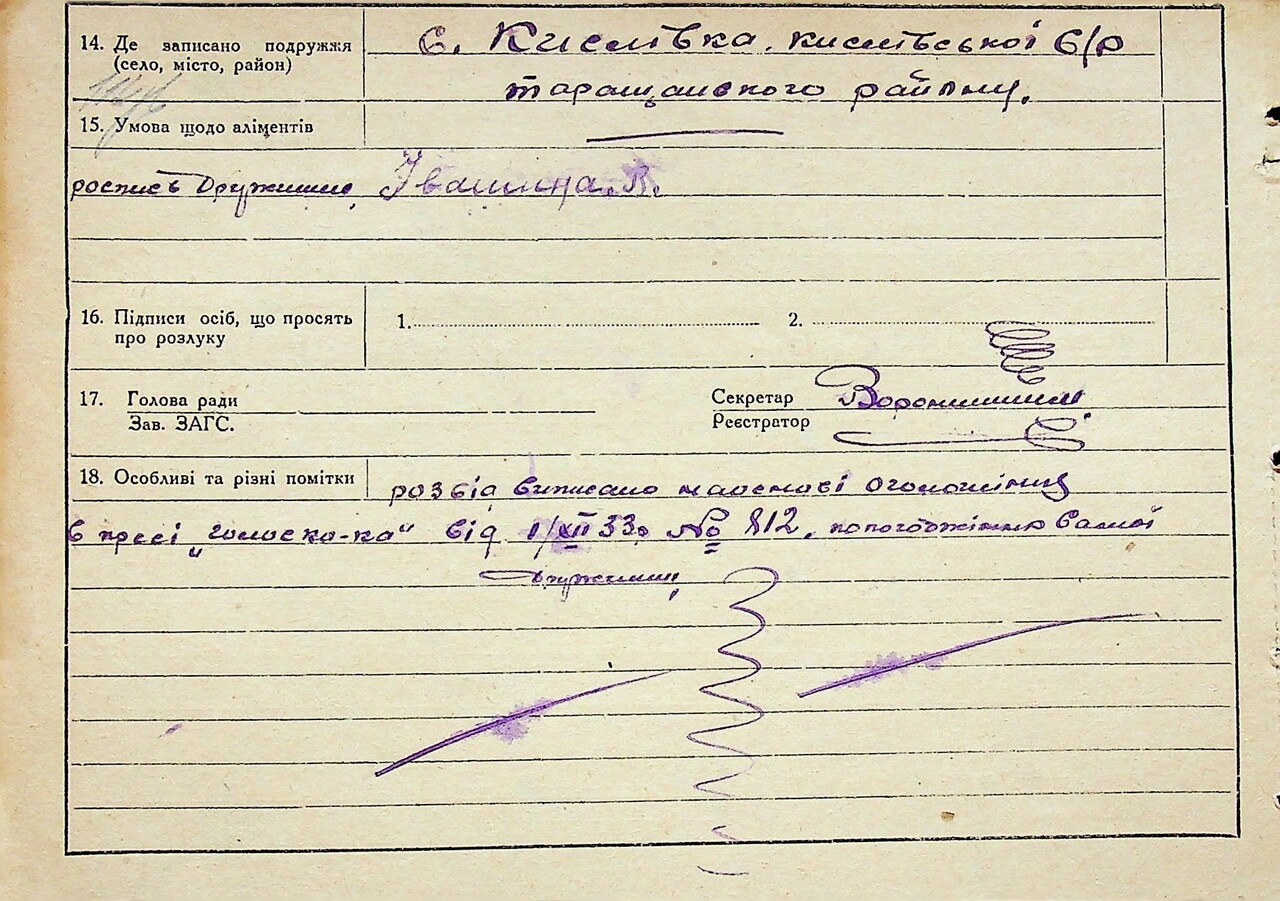 14. Де записано подружжя
(село, місто, район)
с. Кислівка. кислівської с/р
таращанского району.
15. Умова щодо аліментів
роспись Дружини, Івашина. В.
16. Підписи осіб, що просять
про розлуку
1. 2.
17. Голова ради
Зав. ЗАГС.
Секретар
Реєстратор
18. Особливі та різні помітки
розвід виписано
в пресі „ від 1/XII 33р № 812, самої
дружини,